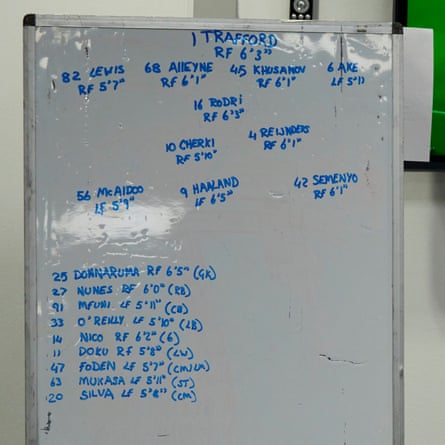 1 TRAFFORD
RF 6'3"
82 LEWIS 68 AlleYNE 45 KHUSANOV 6 AKE
RF 5'7" RF 6'1" RF 6'1" LF 5'11
16 RODRi
RF 6'3"
10 CHERKI 4 REIJNDERS
RF 5'10" RF 6'1"
56 McAIDOO 9 HAALAND 42 SEMENYO
LF 5'9" LF 6'5" RF 6'1"
25 DONNARUMA RF 6'5" (GK)
27 NUNES RF 6'0" (RB)
91 MFUNI LF 5'11" (CB)
33 O'REILLY LF 5'10" (LB)
14 NICO RF 6'2" (6)
11 DOKU RF 5'8" (LW)
47 FODEN LF 5'7" (CM/LM)
63 MUKASA LF 5'11" (ST)
20 SILVA LF 5'8" (CM)